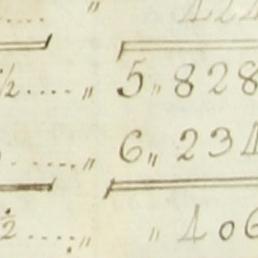 "
½.... " 5 " 828
.... " 6 " 234
2.... " " 406